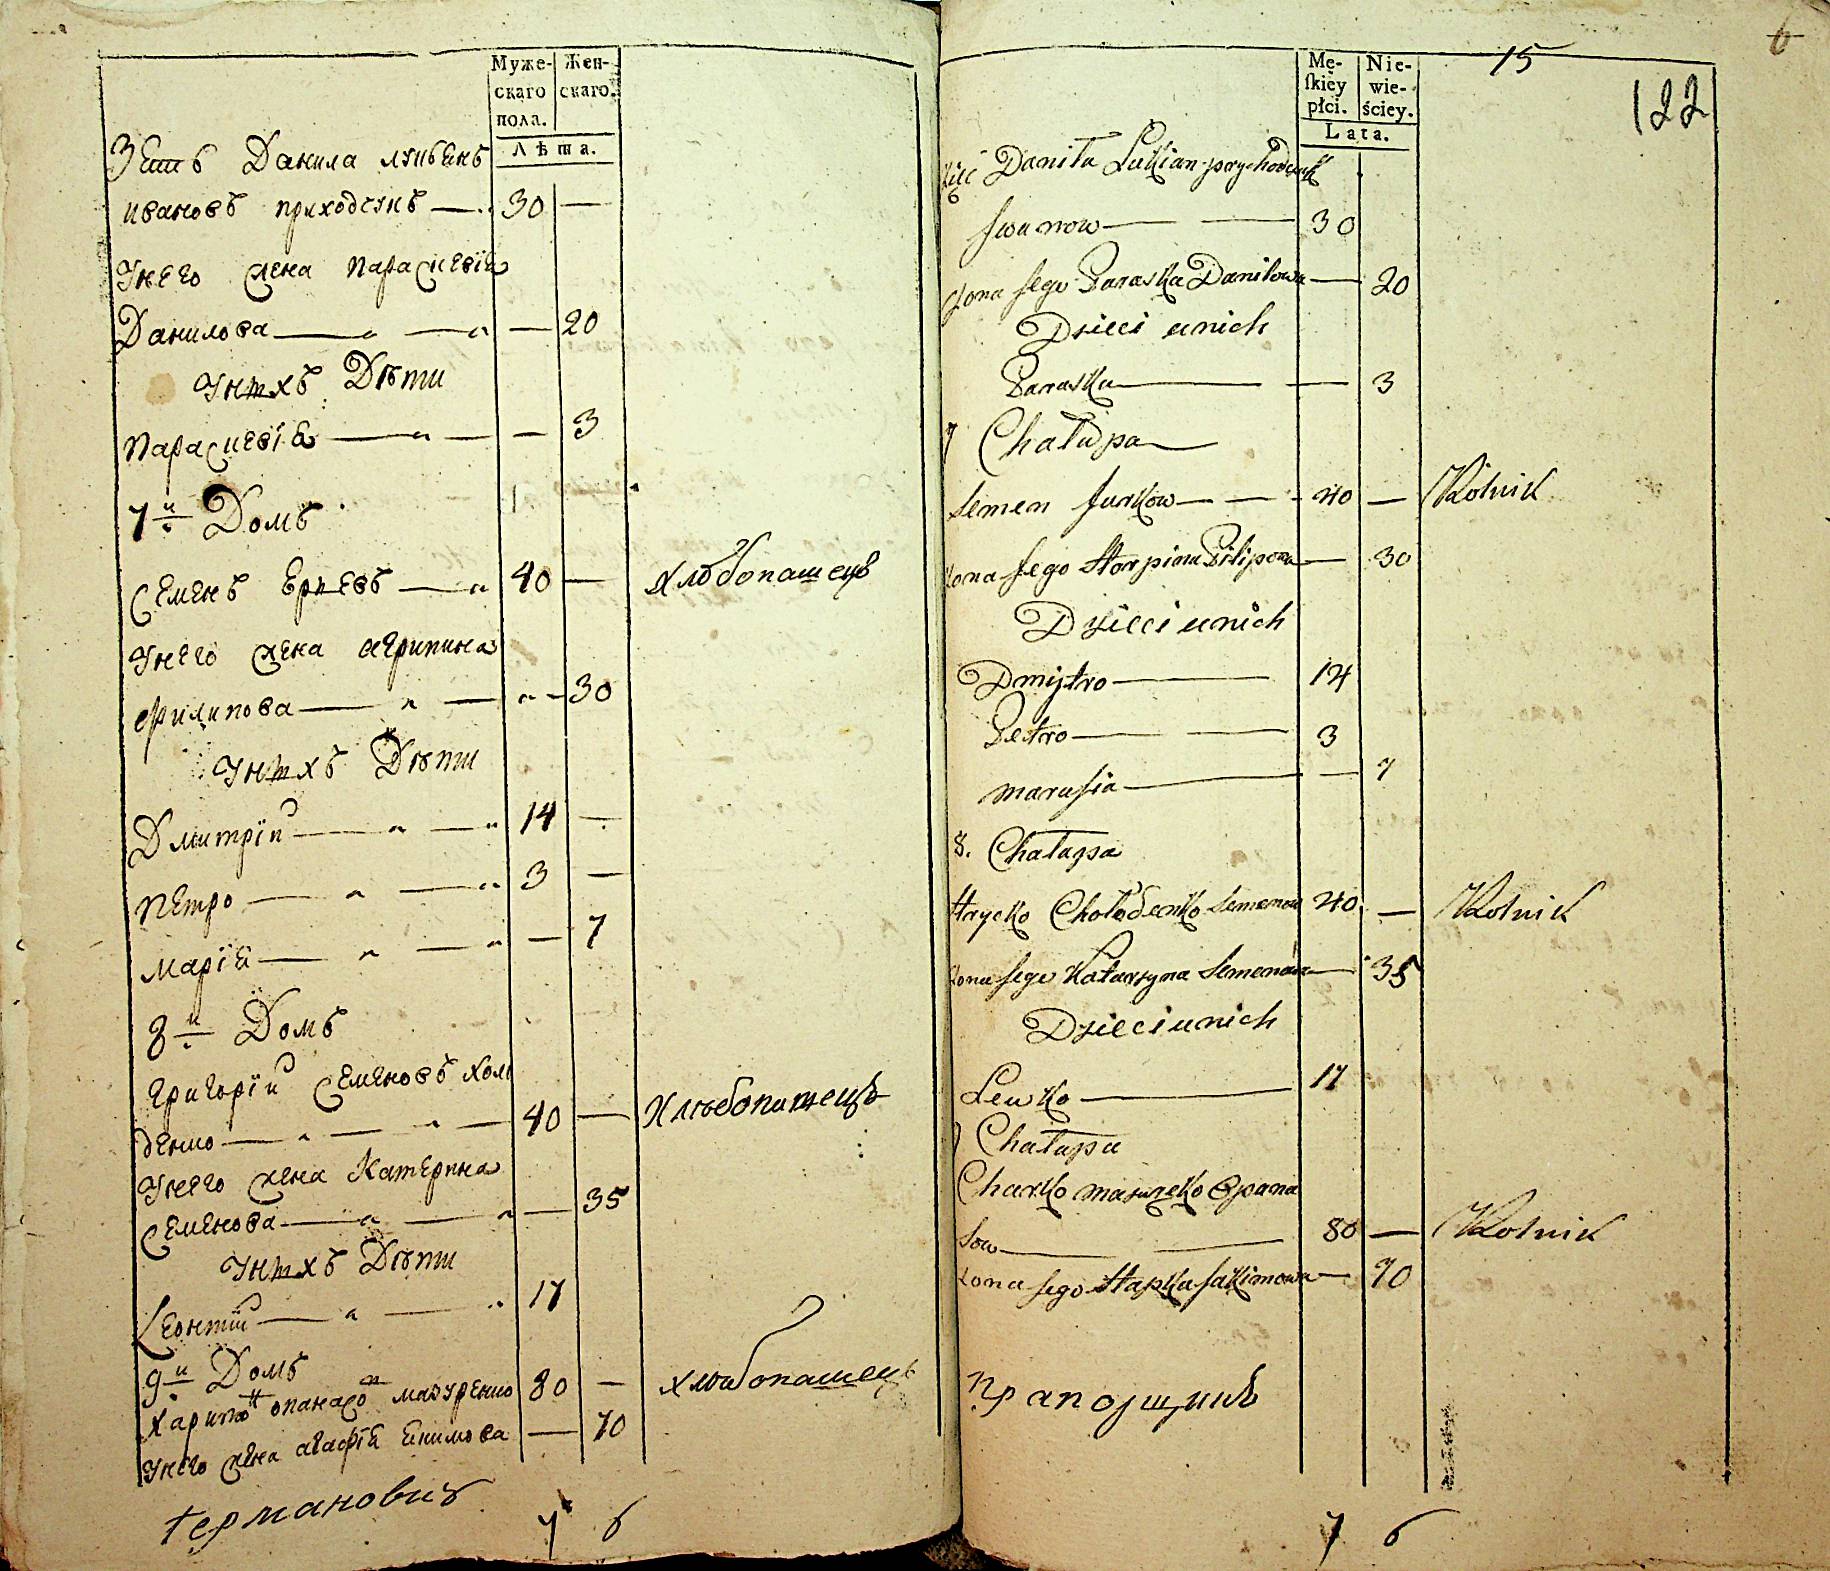 Муже-
скаго
пола.
Жен-
скаго.
Лѣта.
Зять Данила
ивановъ приходчукъ 30 —
Унего жена параскевія
Данилова — 20
Унихъ Дѣти
параскевія — 3
7й Домъ
Семенъ Юрковъ 40 — хлѣбопашецъ
Унего жена агрипина
филипова — 30
Унихъ Дѣти
Дмитрій 14 —
петро 3 —
марія — 7
8й Домъ
григорій Семеновъ холо
денко 40 — Хлѣбопашецъ
Унего жена Катерина
Семенова — 35
Унихъ Дѣти
Леонтій 17
9й Домъ
Харитонъ опанасовъ мазуренко 80 — хлѣбопашецъ
Унего жена агафія якимова — 70
Германовичъ
7 6
6
15
122
Mę-
ſkiey
płci.
Nie-
wie-
ściey.
Lata.
Daniła Łukian prychodczuk
Jwanow 30
Żona Jego Paraska Daniłowa — 20
Dzieci unich
Paraska — 3
7 Chałupa
Semen Jurkow 40 — Rolnik
Żona Jego Horpina Pilipowa — 30
Dzieci unich
Dmytro 14
Petro 3
Marusia — 7
8. Chałupa
Hrycko Chołodenko Semenow 40 — Rolnik
Żona Jego Katarzyna Semenowa — 35
Dzieci unich
Lewko 17
9 Chałupa
Charko mazurcko Opana
sow 80 — Rolnik
Żona Jego Hapka Jakimowa — 70
Прапорщикъ
7 6